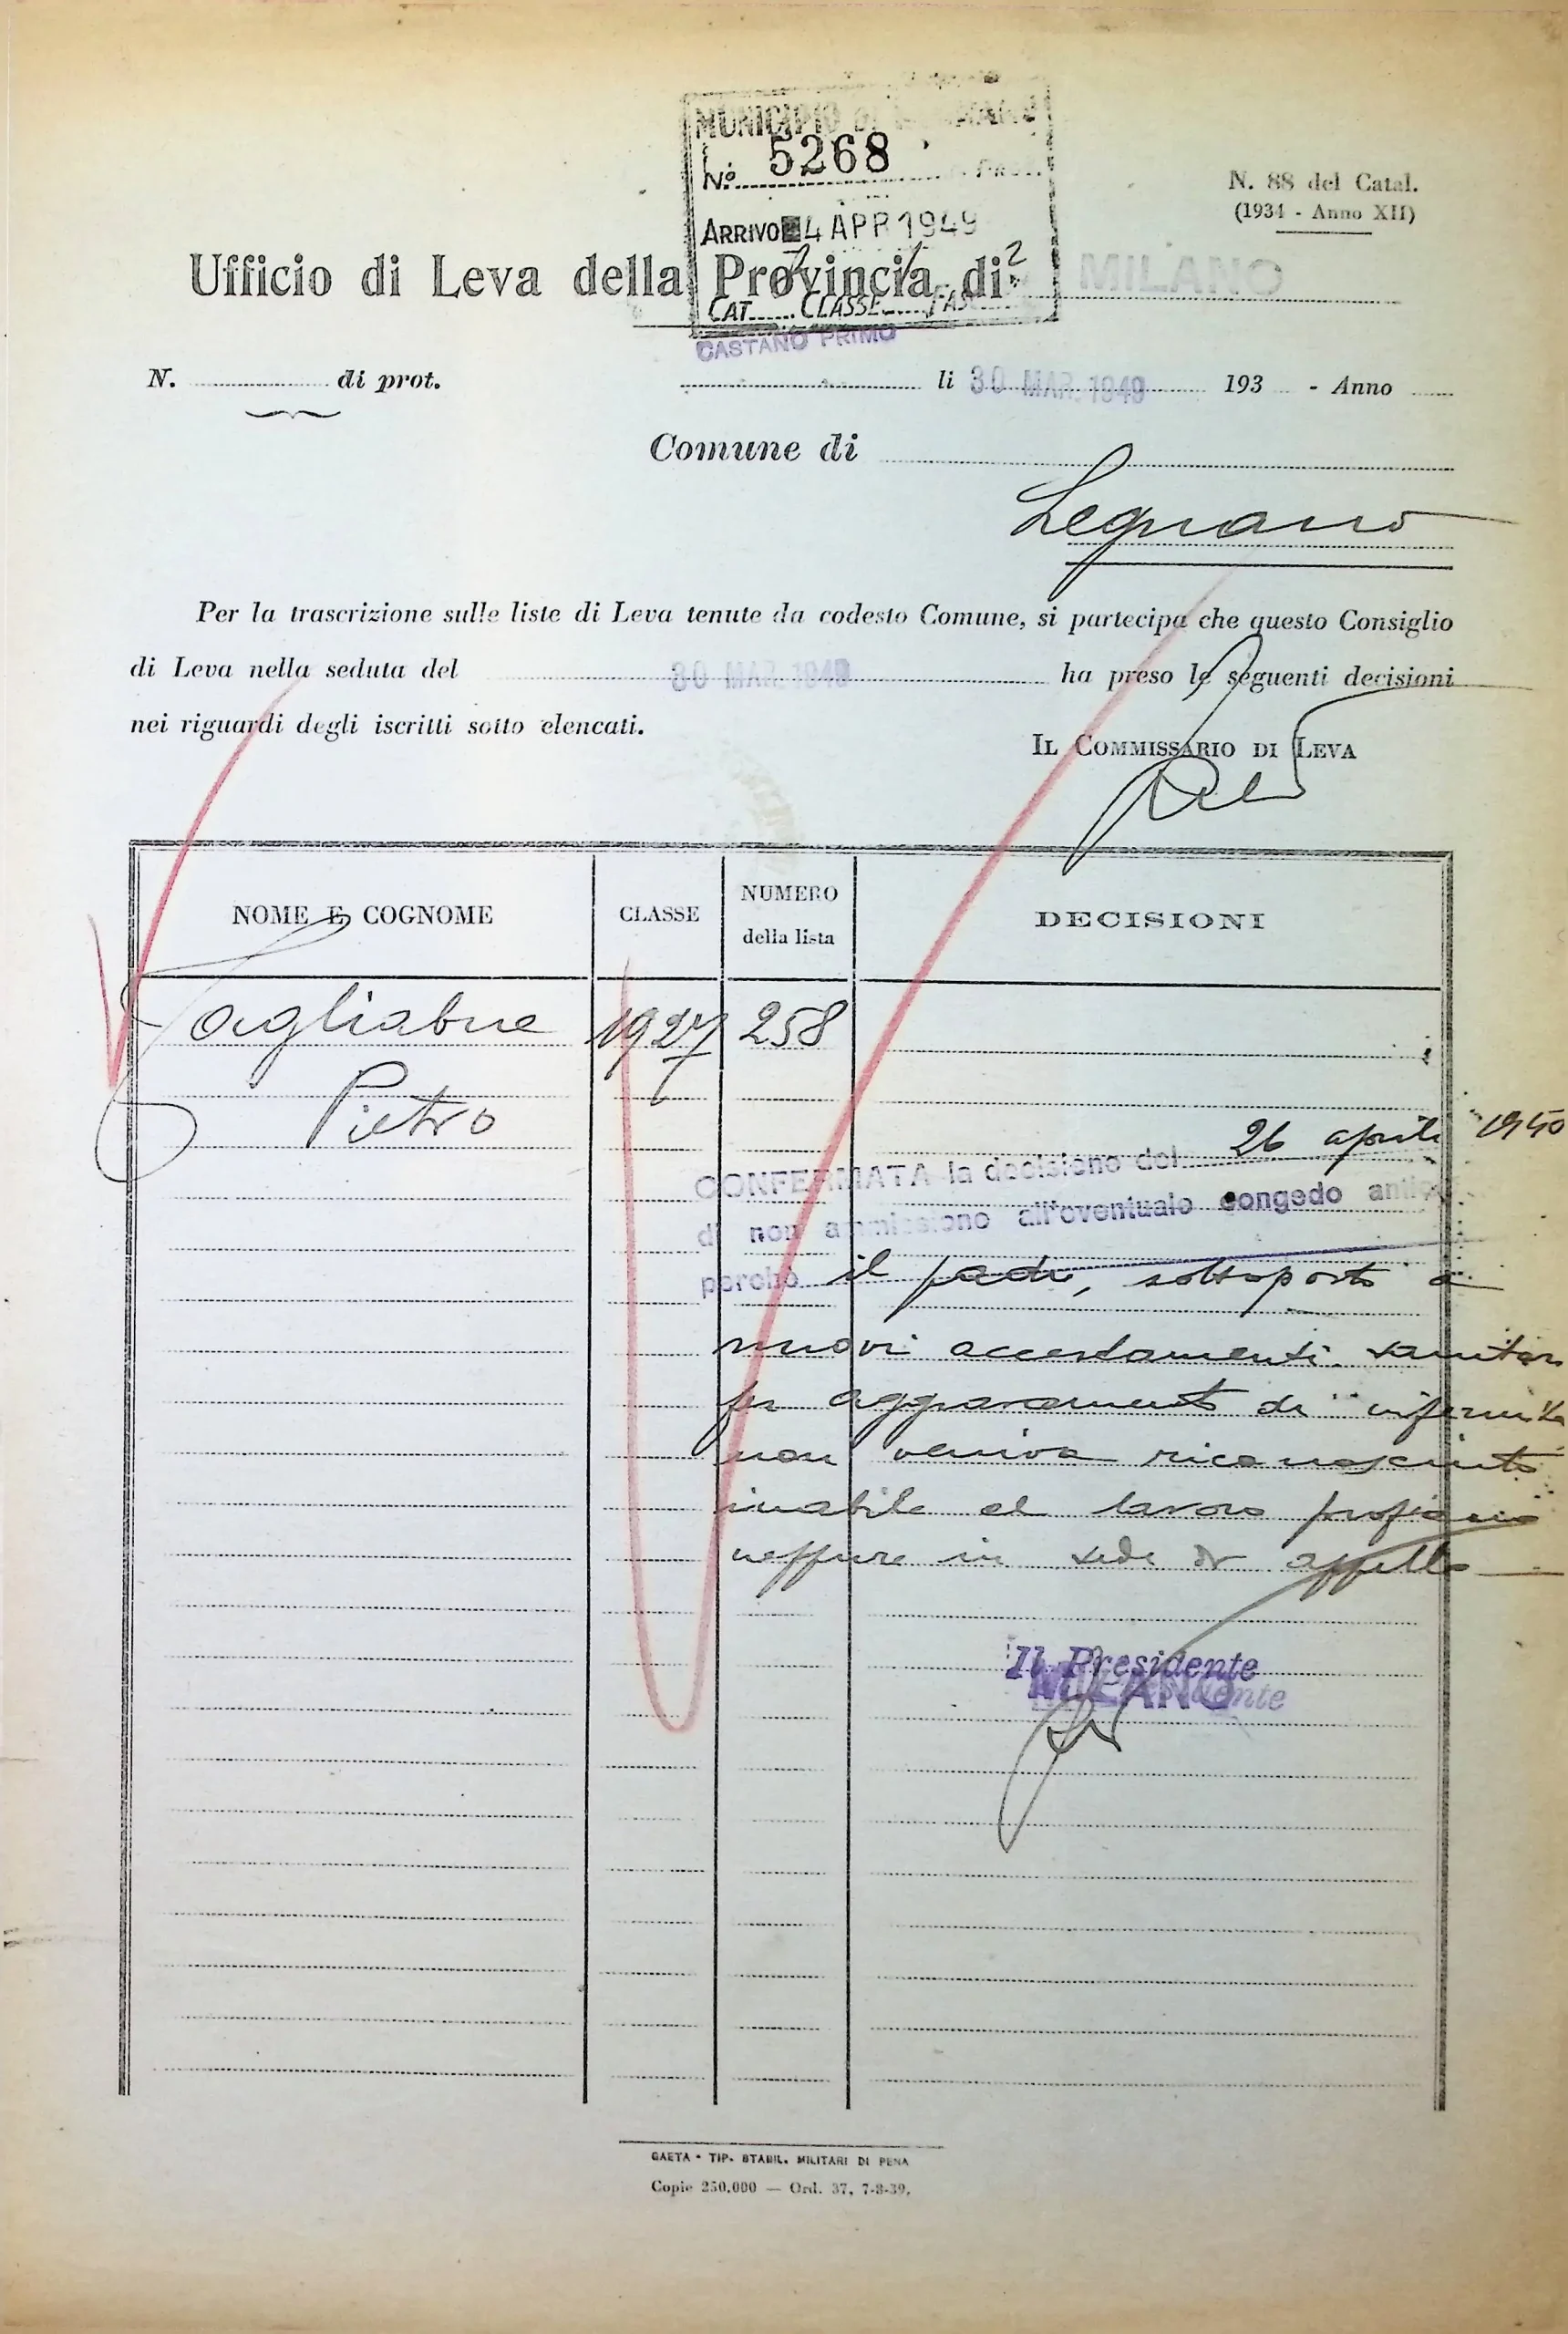 MUNICIPIO DI LEGNANO
N.º 5268 PROT.
ARRIVO 4 APR 1949
2
CAT. CLASSE FAS.
N. 88 del Catal.
(1934 - Anno XII)
Ufficio di Leva della Provincia di MILANO
CASTANO PRIMO
N. di prot. li 30 MAR. 1949 193 - Anno
Comune di
Legnano
Per la trascrizione sulle liste di Leva tenute da codesto Comune, si partecipa che questo Consiglio
di Leva nella seduta del 30 MAR. 1949 ha preso le seguenti decisioni
nei riguardi degli iscritti sotto elencati.
IL COMMISSARIO DI LEVA
NOME E COGNOME CLASSE NUMERO della lista DECISIONI
Tagliabue 1927 258
Pietro
CONFERMATA la decisione del 26 aprile
di non ammissione all'eventuale congedo
perchè il padre, sottoposto a
nuovi accertamenti sanitari
per aggravamento di infermità
non veniva riconosciuto
inabile al lavoro proficuo
neppure in sede di appello
Il Presidente
MILANO
GAETA - TIP. STABIL. MILITARI DI PENA
Copie 250.000 — Ord. 37, 7-8-39.